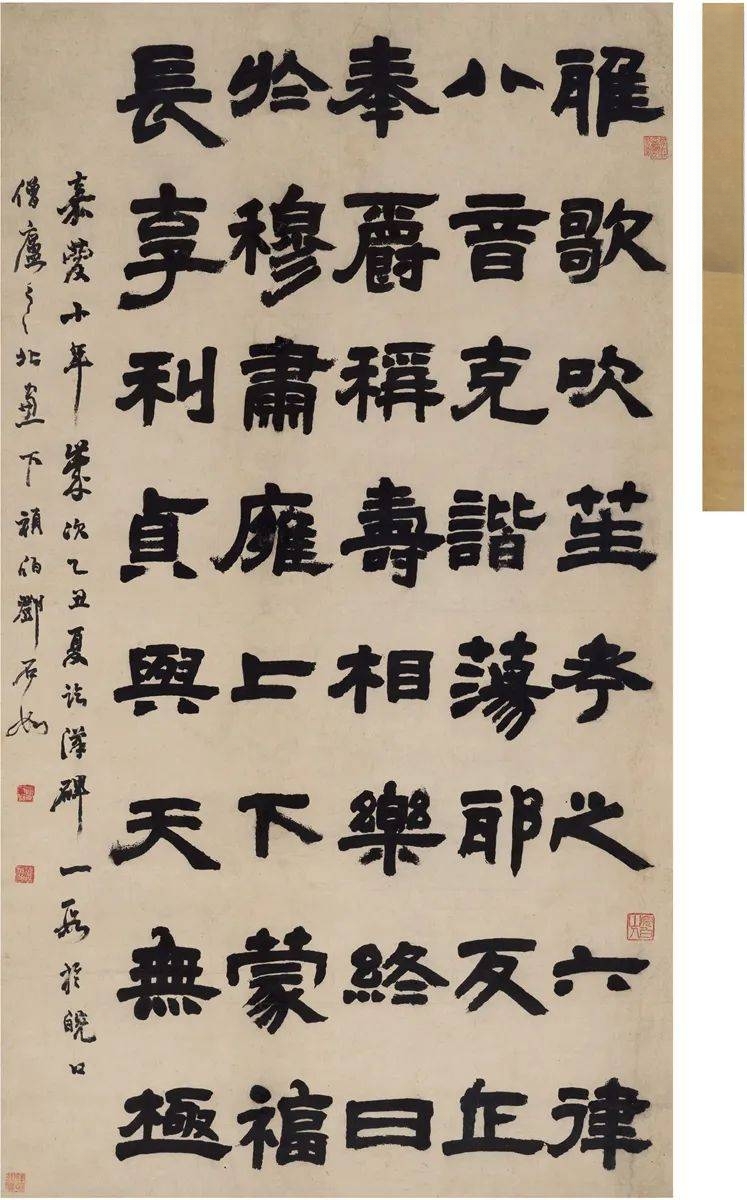 雅歌吹笙考之六律
八音克諧蕩耶反正
奉爵稱壽相樂終日
於穆肅雍上下蒙福
長享利貞與天無極
嘉慶十年歲次乙丑夏臨漢碑一段於皖口
僧廬之北窻下頑伯鄧石如